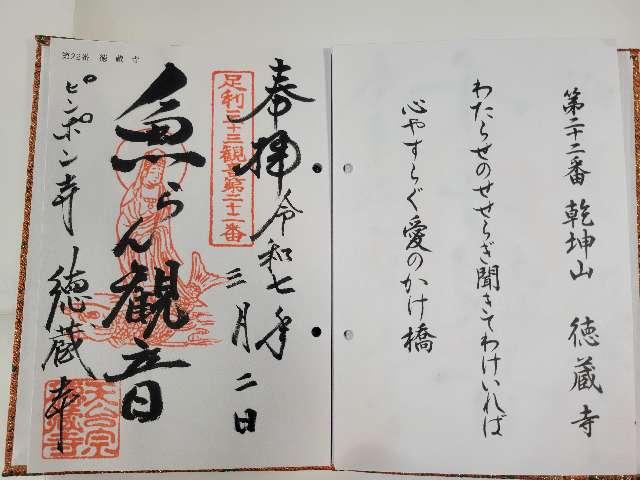 第二十二番 乾坤山 徳蔵寺
わたらせのせせらぎ聞きてわけいれば
心やすらぐ愛のかけ橋
第22番 徳蔵寺
奉拝 令和七年
三月二日
足利三十三観音第二十二番
魚らん観音
ピンポン寺 徳蔵寺
天台宗
徳蔵寺